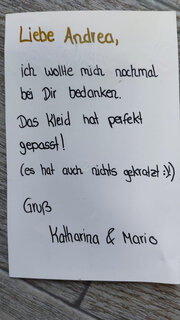 Liebe Andrea,
ich wollte mich nochmal
bei Dir bedanken.
Das Kleid hat perfekt
gepasst!
(es hat auch nichts gekratzt :))
Gruß
Katharina & Mario